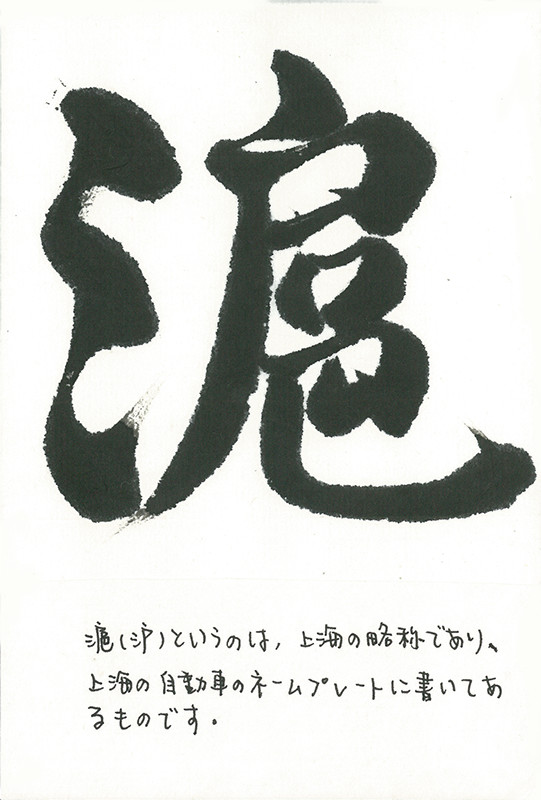 滬
滬(沪)というのは, 上海の略称であり、
上海の自動車のネームプレートに書いてあ
るものです.